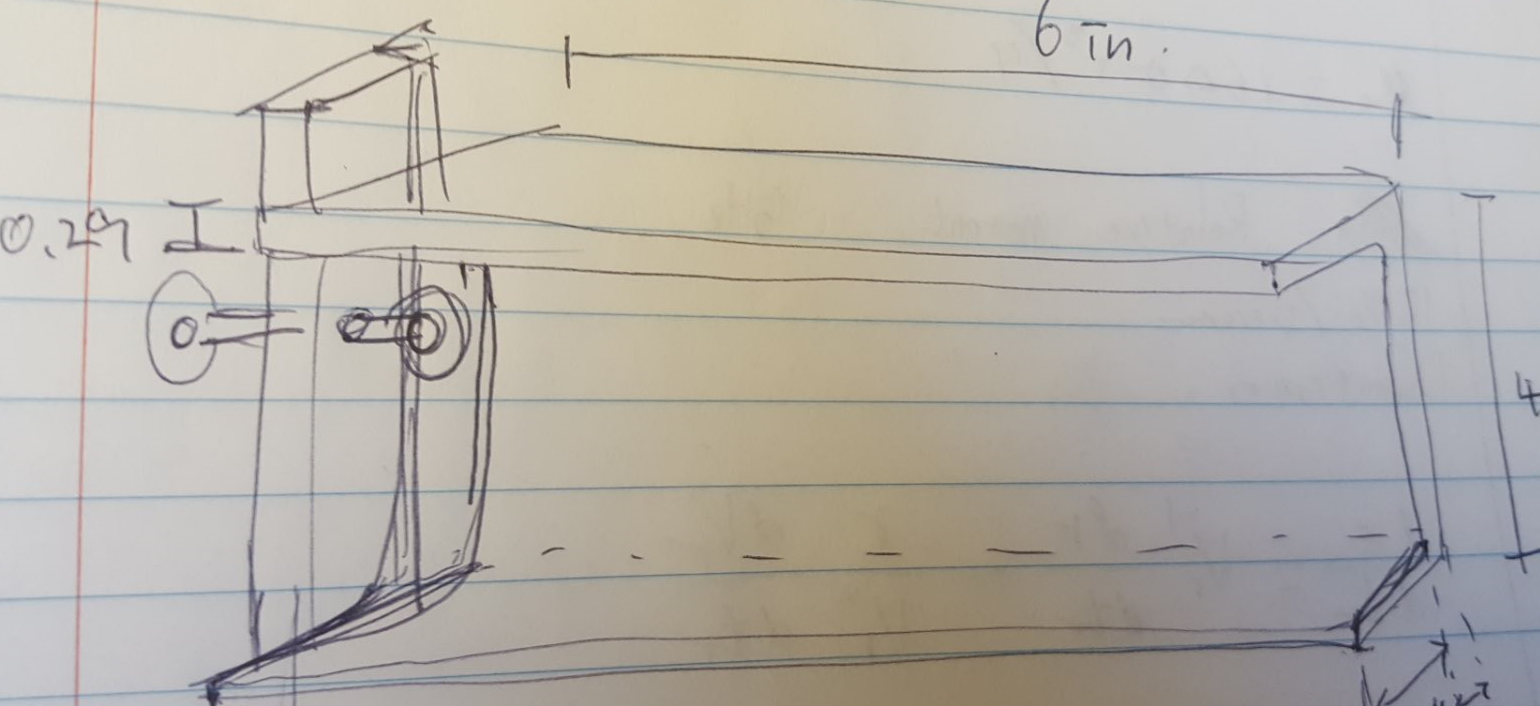 6 in.
0.29
4